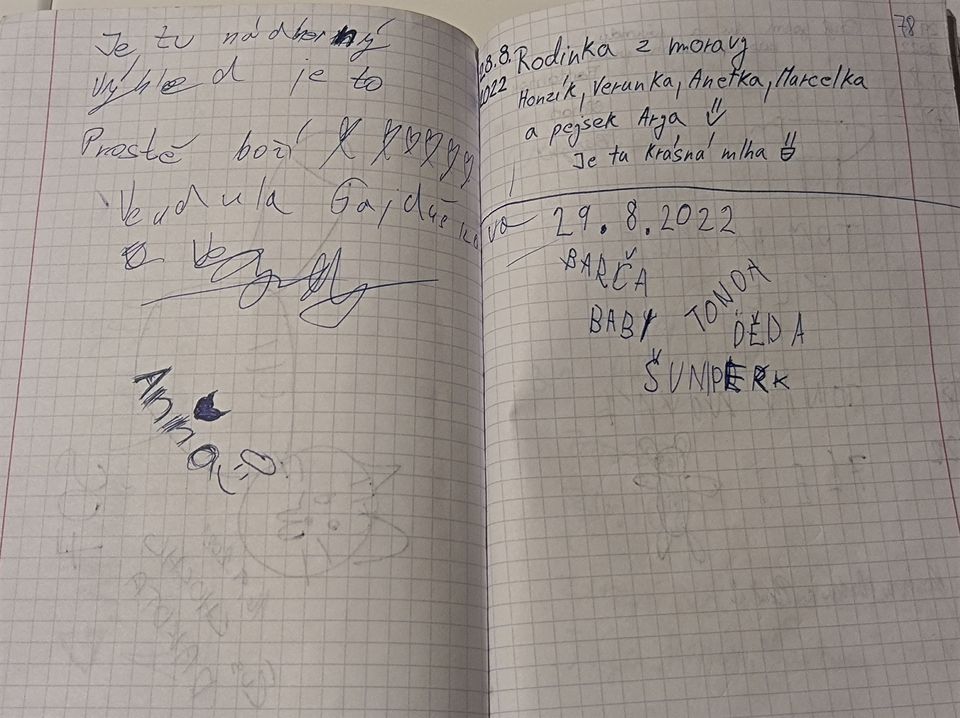 Je tu nádherný
výhled je to
Prostě boží
Vendula Gajduško
Anina
78
28.8.
2022
Rodinka z moravy
Honzík, Verunka, Anetka, Marcelka
a pejsek Arga
Je tu krásná mlha
29.8.2022
BARČA
TONDA
BABI
DĚDA
ŠUMPERK